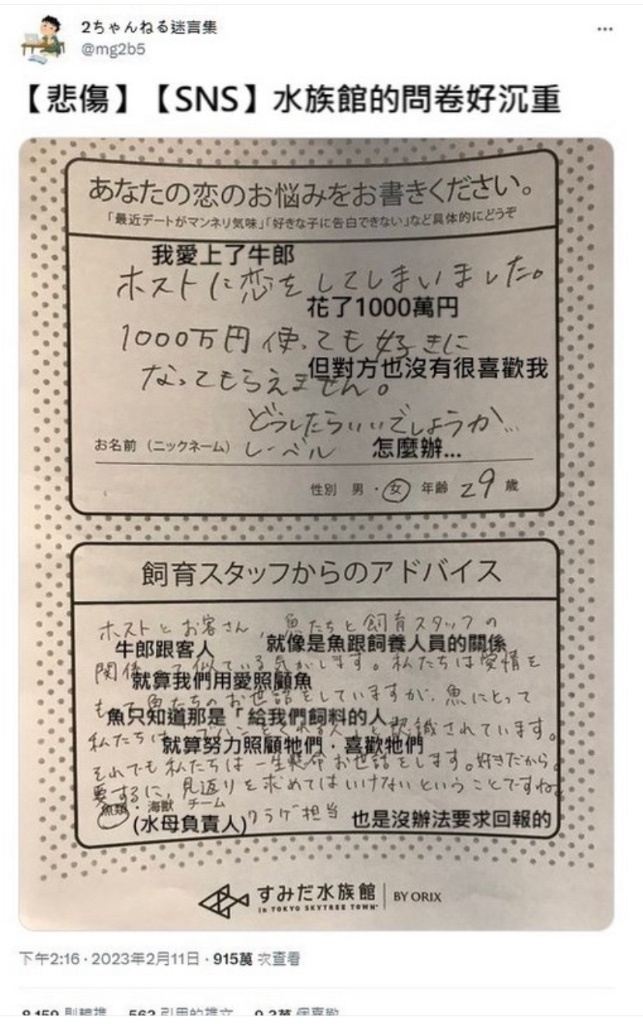 2ちゃんねる迷言集
@mg2b5
【悲傷】【SNS】水族館的問卷好沉重
あなたの恋のお悩みをお書きください。
「最近デートがマンネリ気味」「好きな子に告白できない」など具体的にどうぞ
我愛上了牛郎
ホストに恋をしてしまいました。
花了1000萬円
1000万円使っても好きに
但對方也沒有很喜歡我
なってもらえません。
どうしたらいいでしょうか…
お名前（ニックネーム） レーベル
怎麼辦...
性別 男・女 年齢 29 歳
飼育スタッフからのアドバイス
ホストとお客さん、魚たちと飼育スタッフの
牛郎跟客人 就像是魚跟飼養人員的關係
関係って似ている気がします。私たちは愛情を
就算我們用愛照顧魚
もって魚たちのお世話をしていますが、魚にとって
魚只知道那是「給我們飼料的人
私たちは、 と認識されています。
就算努力照顧牠們，喜歡牠們
それでも私たちは一生懸命お世話をします。好きだから。
要するに、見返りを求めてはいけないということですね。
魚類・海獣 チーム
(水母負責人) クラゲ担当 也是沒辦法要求回報的
すみだ水族館 BY ORIX
in TOKYO SKYTREE TOWN
下午2:16 · 2023年2月11日 · 915萬 次查看